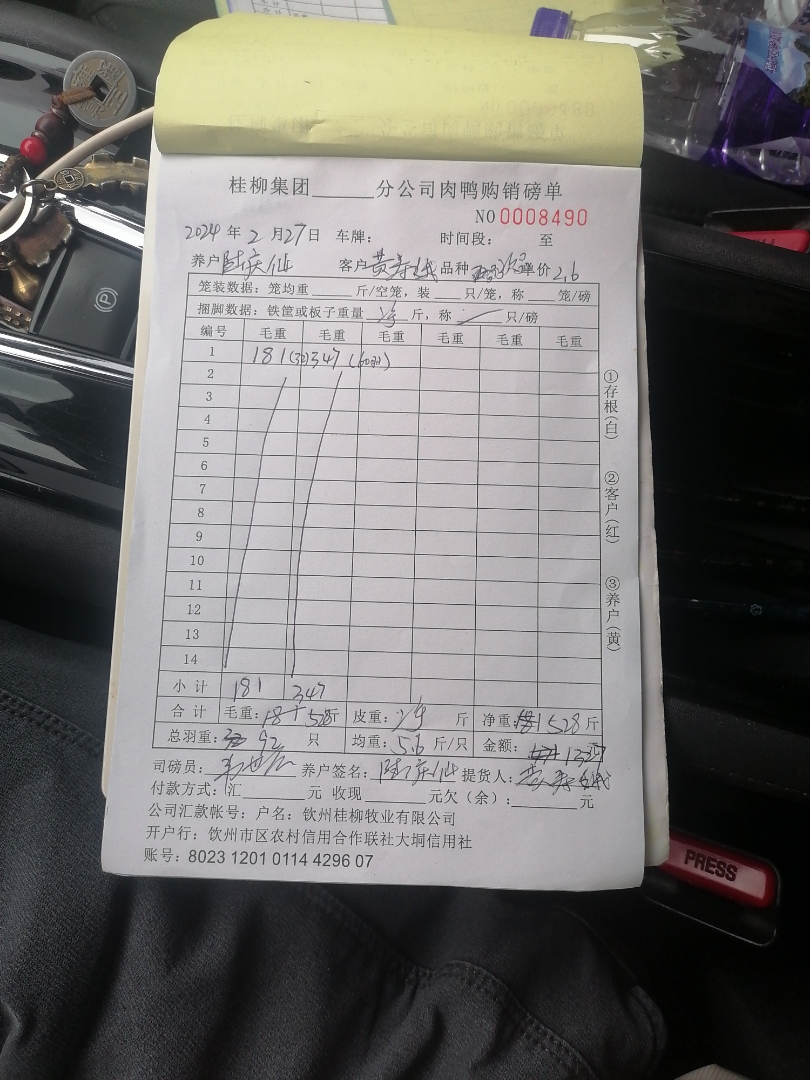 桂柳集团______分公司肉鸭购销磅单
NO 0008490
2024 年 2 月 27 日 车牌: 时间段: 至
养户 陆庆仙 客户 黄寿 品种 单价 2.6
笼装数据: 笼均重______斤/空笼, 装___只/笼, 称___笼/磅
捆脚数据: 铁筐或板子重量 斤, 称 只/磅
编号 毛重 毛重 毛重 毛重 毛重 毛重
1 181 347
2
3
4
5
6
7
8
9
10
11
12
13
14
小计 181 347
合计 毛重: 528斤 皮重: 斤 净重: 528斤
总羽重: 92 只 均重: 5.6 斤/只 金额:
司磅员: 养户签名: 陆庆仙 提货人:
付款方式: 汇______元 收现______元欠(余):______元
公司汇款帐号: 户名: 钦州桂柳牧业有限公司
开户行: 钦州市区农村信用合作联社大垌信用社
账号: 8023 1201 0114 4296 07
①存根(白)
②客户(红)
③养户(黄)
PRESS